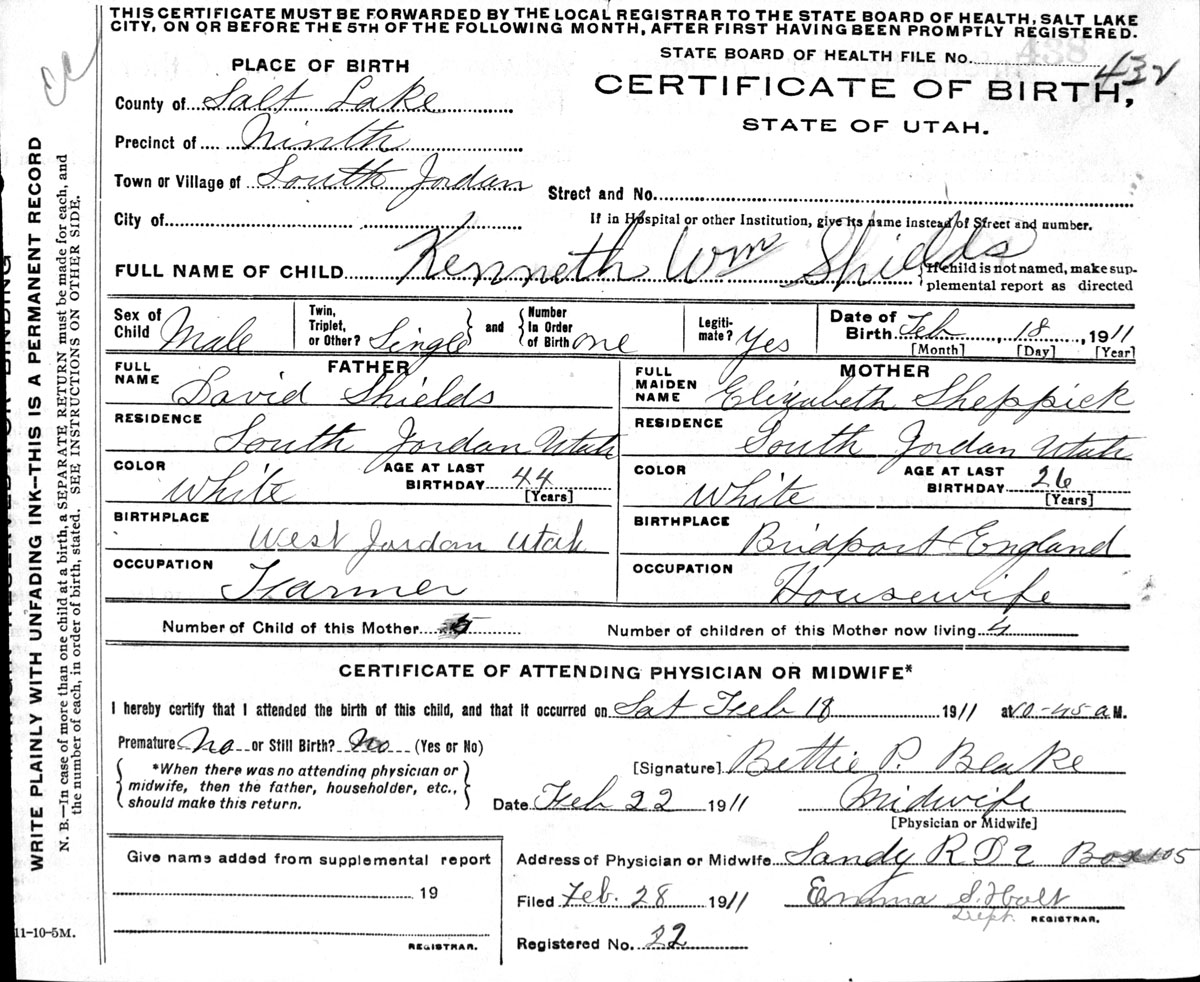 THIS CERTIFICATE MUST BE FORWARDED BY THE LOCAL REGISTRAR TO THE STATE BOARD OF HEALTH, SALT LAKE
CITY, ON OR BEFORE THE 5TH OF THE FOLLOWING MONTH, AFTER FIRST HAVING BEEN PROMPTLY REGISTERED.
STATE BOARD OF HEALTH FILE No. 438 432
PLACE OF BIRTH
CERTIFICATE OF BIRTH,
STATE OF UTAH.
County of Salt Lake
Precinct of Ninth
Town or Village of South Jordan
Street and No.
City of
If in Hospital or other Institution, give its name instead of Street and number.
FULL NAME OF CHILD Kenneth Wm Shields
If child is not named, make sup-
plemental report as directed
Sex of Child Male
Twin, Triplet, or Other? Single and Number In Order of Birth one
Legiti-mate? Yes
Date of Birth Feb 18, 1911
[Month] [Day] [Year]
FATHER
MOTHER
FULL NAME David Shields
FULL MAIDEN NAME Elizabeth Sheppick
RESIDENCE South Jordan Utah
RESIDENCE South Jordan Utah
COLOR White AGE AT LAST BIRTHDAY 44 [Years]
COLOR White AGE AT LAST BIRTHDAY 26 [Years]
BIRTHPLACE West Jordan Utah
BIRTHPLACE Bridport England
OCCUPATION Farmer
OCCUPATION Housewife
Number of Child of this Mother 5
Number of children of this Mother now living
CERTIFICATE OF ATTENDING PHYSICIAN OR MIDWIFE*
I hereby certify that I attended the birth of this child, and that it occurred on Sat Feb 18 1911 at 10-45 a M.
Premature No or Still Birth? No (Yes or No)
*When there was no attending physician or
midwife, then the father, householder, etc.,
should make this return.
[Signature] Bettie P. Beake
Date Feb 22 1911 Midwife
[Physician or Midwife]
Give name added from supplemental report
19
REGISTRAR.
Address of Physician or Midwife Sandy R D 2 Box 105
Filed Feb. 28 1911 Emma S. Holt
Dept. REGISTRAR.
Registered No. 22
WRITE PLAINLY WITH UNFADING INK—THIS IS A PERMANENT RECORD
N. B.—In case of more than one child at a birth, a SEPARATE RETURN must be made for each, and
the number of each, in order of birth, stated. SEE INSTRUCTIONS ON OTHER SIDE.
11-10-5M.